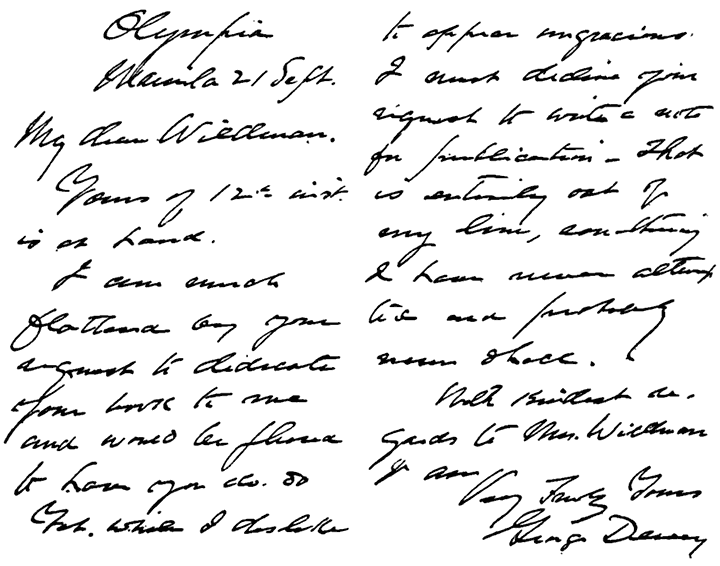 Olympia
Manila 21 Sept.
My dear Wildman.
Yours of 12th inst.
is at hand.
I am much
flattered by your
request to dedicate
your book to me
and would be pleased
to have you do so
Yet, while I dislike
to appear ungracious
I must decline your
request to write a note
for publication – That
is entirely out of
my line, something
I have never attemp
ted and probably
never shall.
With kindest re-
gards to Mrs. Wildman
I am
Very Truly Yours
George Dewey